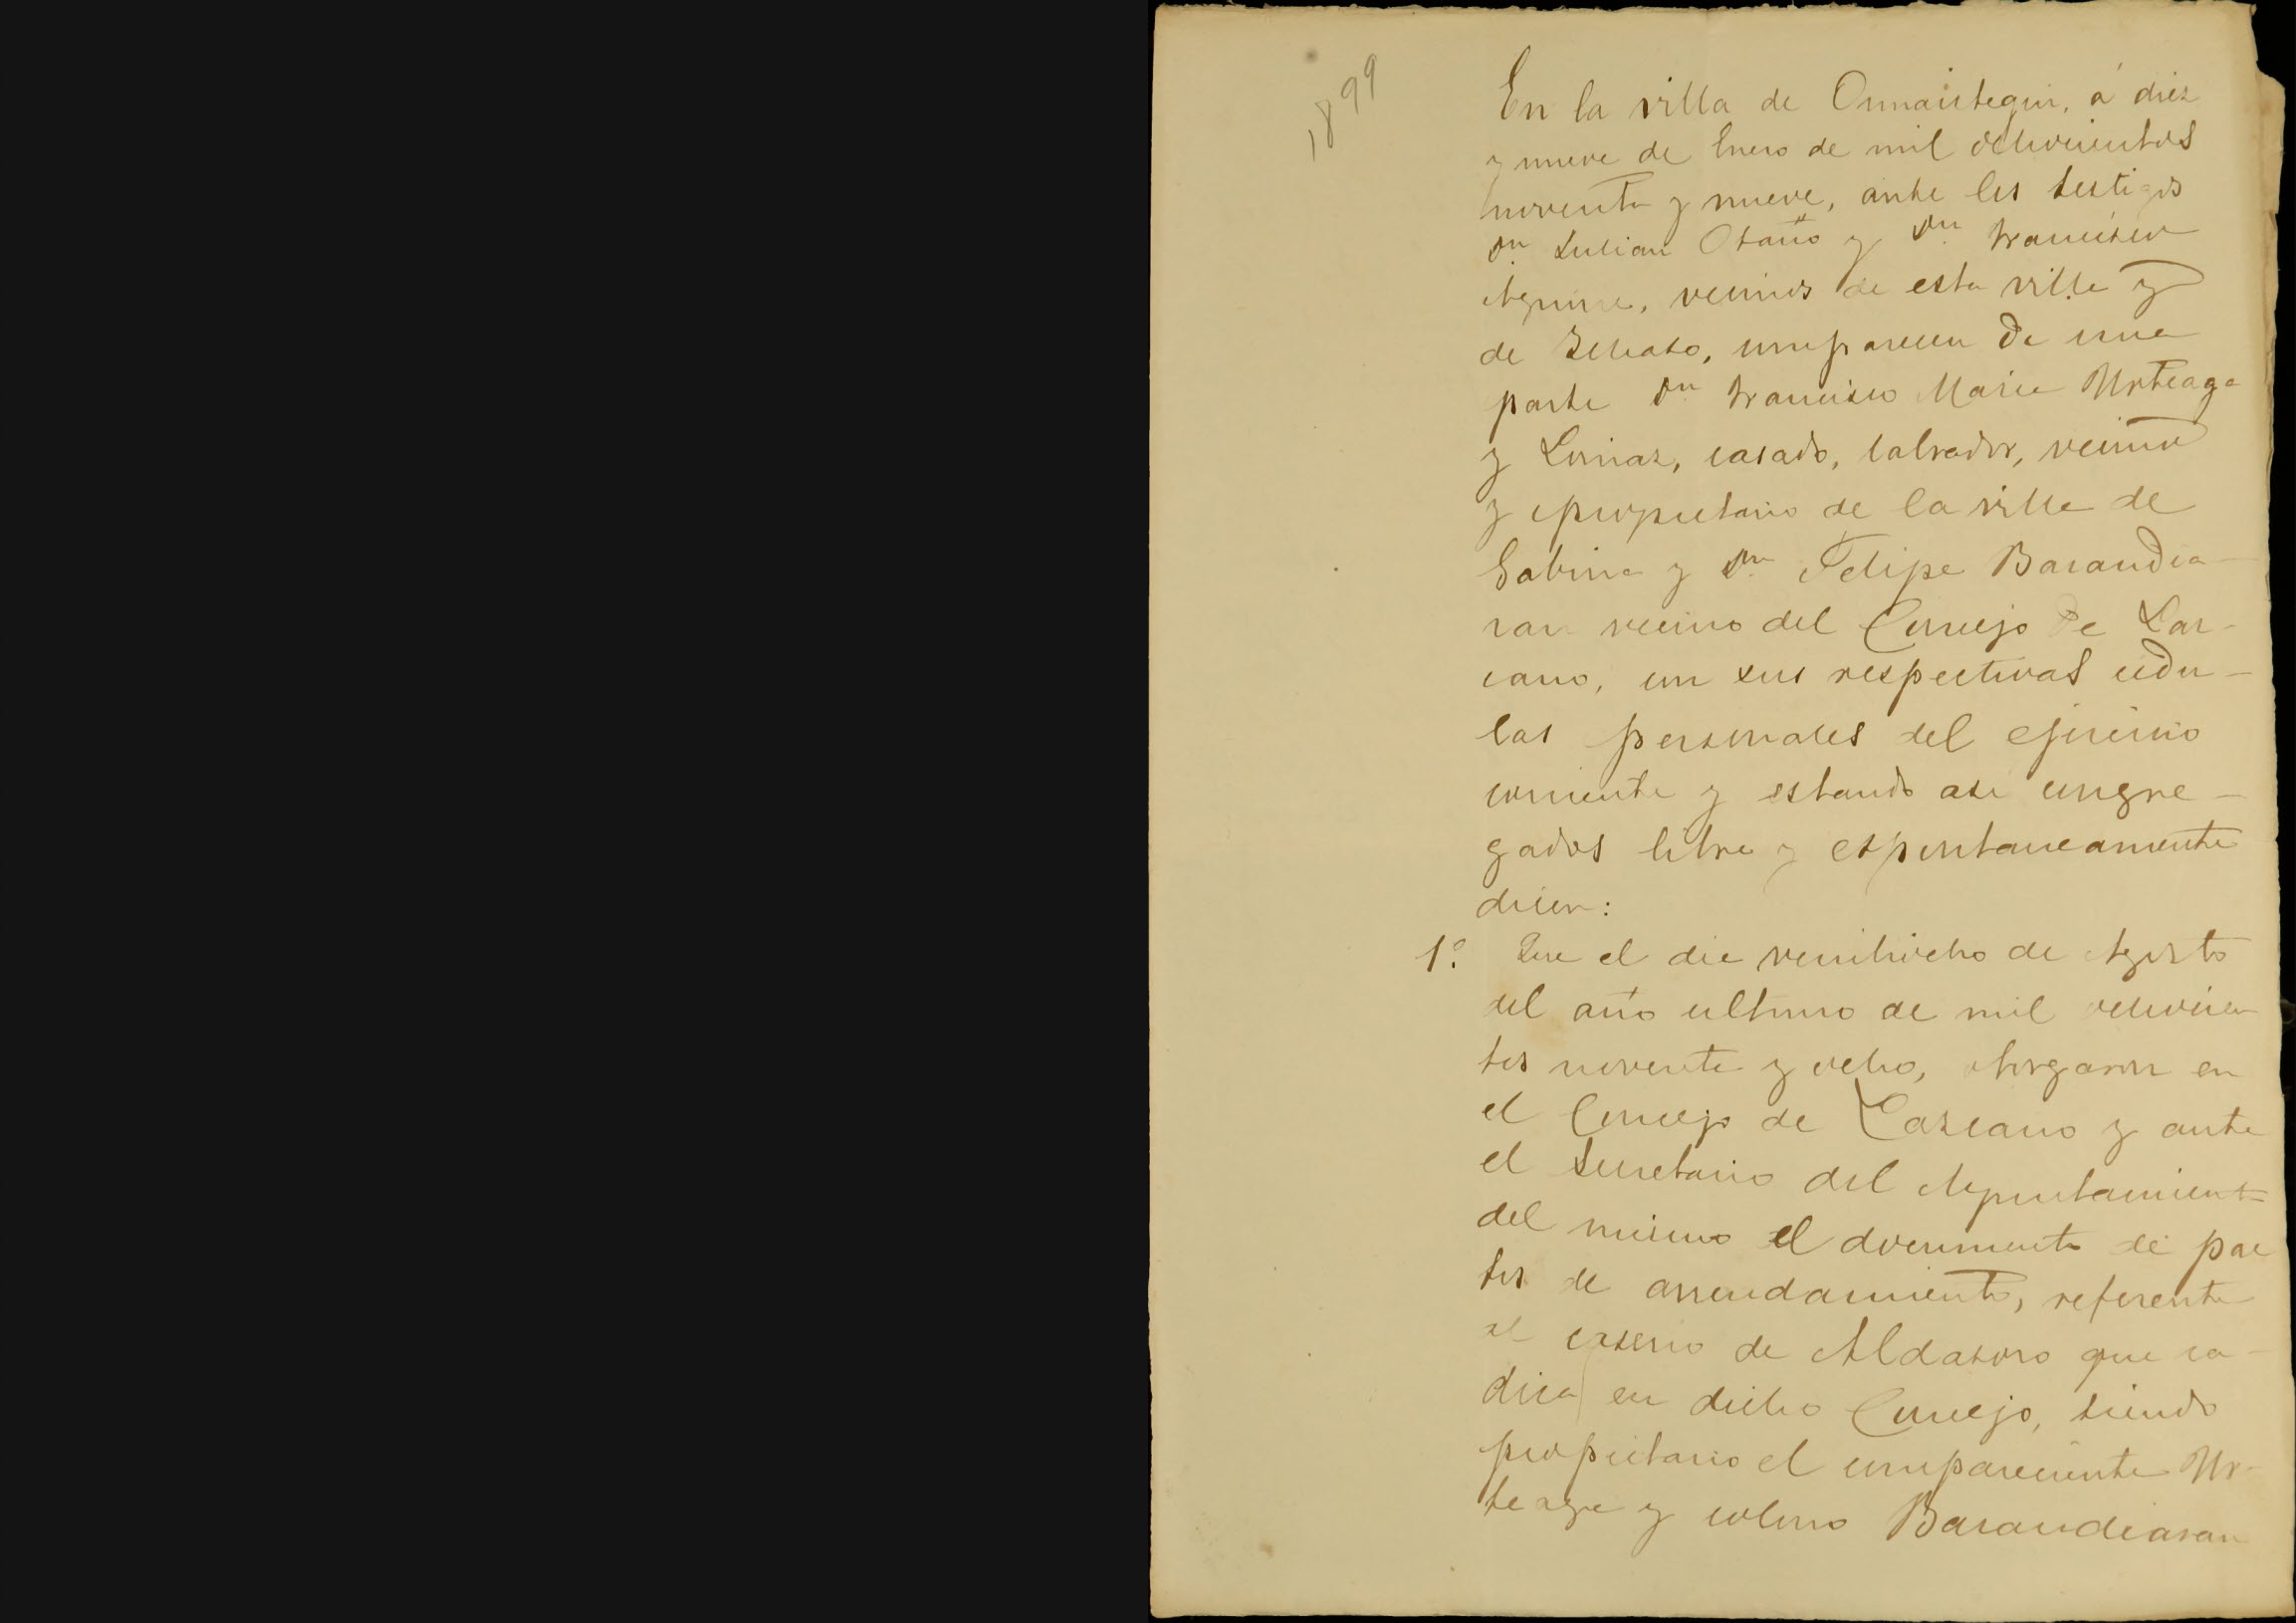 1899
En la villa de Ormaiztegui, á diez
y nueve de Enero de mil ochocientos
noventa y nueve, ante los testigos
Dn Julian Otaño y Dn Francisco
Aguirre, vecinos de esta villa y
de, comparecen de una
parte Dn Francisco Maria Urteaga
y, casado, labrador, vecino
y propietario de la villa de
Gabiria y Dn Felipe Barandia-
ran vecino del Concejo de Laz-
cano, con sus respectivas cedu-
las personales del ejercicio
corriente y estando asi congre-
gados libre y espontaneamente
dicen:
1º Que el dia veintiocho de Agosto
del año ultimo de mil ochocien
tos noventa y ocho, otorgaron en
el Concejo de Lazcano y ante
el Secretario del Ayuntamiento
del mismo el documento de pac
tos de arrendamiento, referente
al caserio de Aldasoro que ra-
dica en dicho Concejo, siendo
propietario el compareciente Ur-
teaga y colono Barandiaran